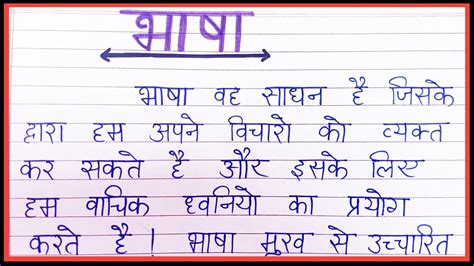 भाषा
भाषा वह साधन है जिसके
द्वारा हम अपने विचारो को व्यक्त
कर सकते है और इसके लिए
हम वाचिक ध्वनियो का प्रयोग
करते है । भाषा मुख से उच्चारित